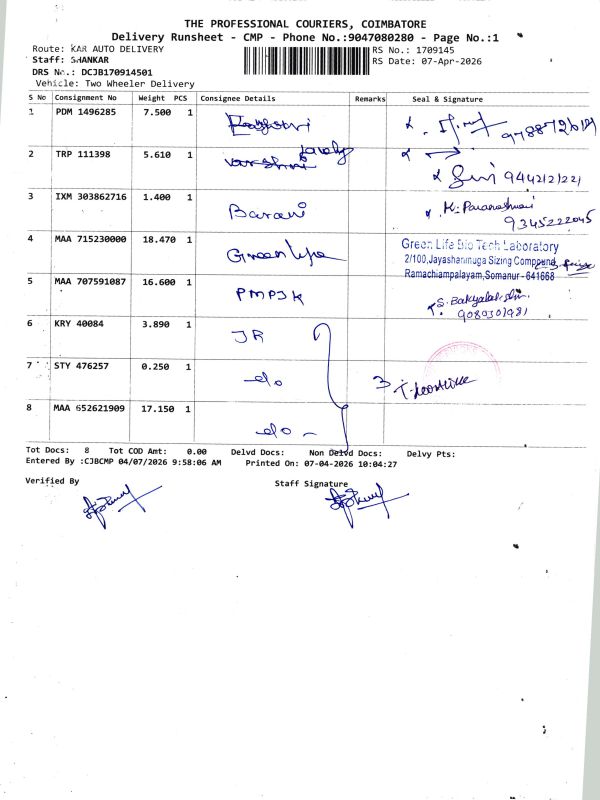 THE PROFESSIONAL COURIERS, COIMBATORE
Delivery Runsheet - CMP - Phone No.:9047080280 - Page No.:1
Route: KAR AUTO DELIVERY
RS No.: 1709145
Staff: SHANKAR
RS Date: 07-Apr-2026
DRS No.: DCJB170914501
Vehicle: Two Wheeler Delivery
S No Consignment No Weight PCS Consignee Details Remarks Seal & Signature
1 PDM 1496285 7.500 1
2 TRP 111398 5.610 1 Varshni
9442121221
3 IXM 303862716 1.400 1 Barani K. Parameshwari
9345222045
4 MAA 715230000 18.470 1 Green life Green Life Bio Tech Laboratory
2/100,Jayashanmuga Sizing Compound,
Ramachiampalayam,Somanur - 641668
5 MAA 707591087 16.600 1 PMPJK
9080301981
6 KRY 40084 3.890 1 JR
7 STY 476257 0.250 1 do 3
8 MAA 652621909 17.150 1 do -
Tot Docs: 8 Tot COD Amt: 0.00 Delvd Docs: Non Delvd Docs: Delvy Pts:
Entered By :CJBCMP 04/07/2026 9:58:06 AM Printed On: 07-04-2026 10:04:27
Verified By Staff Signature